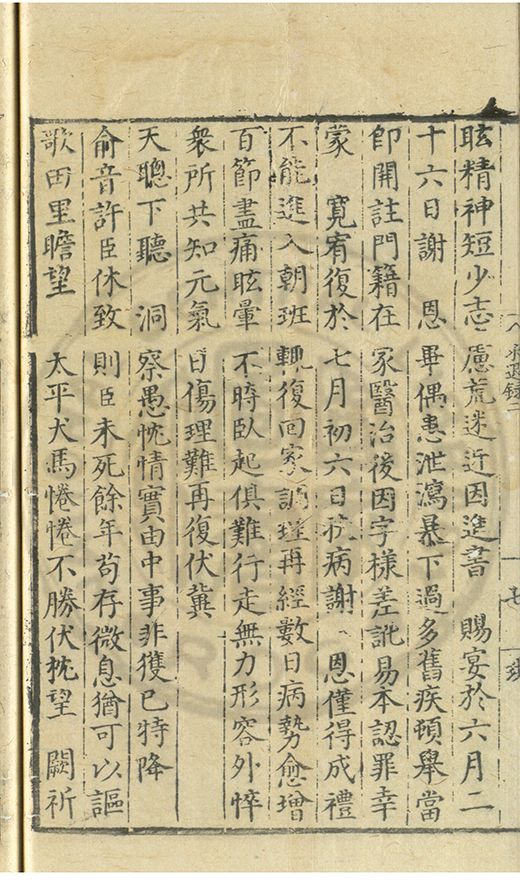 眩精神短少志慮荒迷近因進書　賜宴於六月二
十六日謝　恩畢偶患泄瀉暴下過多舊疾頓舉當
即開註門籍在家醫治後因字樣差訛易本認罪幸
蒙　寬宥復於七月初六日扶病謝　恩僅得成禮
不能進入朝班輒復回家調理再經數日病勢愈增
百節盡痛眩暈不時臥起俱難行走無力形容外悴
衆所共知元氣日傷理難再復伏冀
天聰下聽　洞察愚忱情實由中事非獲已特降
俞音許臣休致則臣未死餘年苟存微息猶可以謳
歌田里瞻望　太平犬馬惓惓不勝伏枕望　闕祈